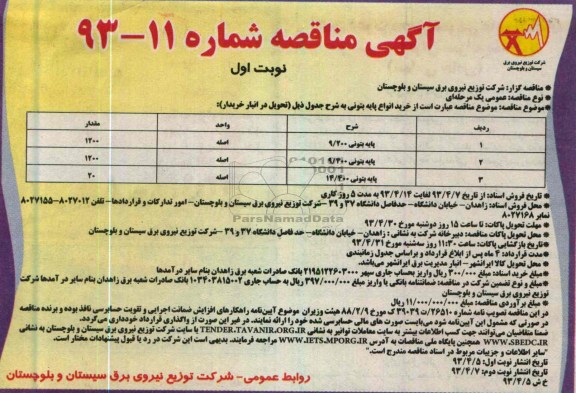 شرکت توزیع نیروی برق
سیستان و بلوچستان
آگهی مناقصه شماره ۱۱-۹۳
نوبت اول
مناقصه گزار: شرکت توزیع نیروی برق سیستان و بلوچستان
نوع مناقصه: عمومی یک مرحله‌ای
موضوع مناقصه: موضوع مناقصه عبارت است از خرید انواع پایه بتونی به شرح جدول ذیل (تحویل در انبار خریدار):
ردیف شرح واحد مقدار
۱ پایه بتونی ۹/۲۰۰ اصله ۱۲۰۰
۲ پایه بتونی ۹/۴۰۰ اصله ۱۲۰۰
۳ پایه بتونی ۱۴/۴۰۰ اصله ۲۰
ParsNamadData
تاریخ فروش اسناد: از تاریخ ۹۳/۴/۷ لغایت ۹۳/۴/۱۴ به مدت ۵ روز کاری
محل فروش اسناد: زاهدان- خیابان دانشگاه- حدفاصل دانشگاه ۳۷ و ۳۹ -شرکت توزیع نیروی برق سیستان و بلوچستان- امور تدارکات و قراردادها- تلفن ۸۰۲۷۰۱۲-۸۰۲۷۱۵۵
نمابر ۸۰۲۷۱۶۸
مهلت تحویل پاکات: تا ساعت ۱۵ روز دوشنبه مورخ ۹۳/۴/۳۰
محل تحویل پاکات مناقصه: دبیرخانه شرکت به نشانی: زاهدان- خیابان دانشگاه- حد فاصل دانشگاه ۳۷ و ۳۹- شرکت توزیع نیروی برق سیستان و بلوچستان
تاریخ بازگشایی پاکات: ساعت ۱۱:۳۰ روز سه‌شنبه مورخ ۹۳/۴/۳۱
مدت قرارداد: ۴ ماه پس از ابلاغ قرارداد و براساس جدول زمانبندی
محل تحویل کالا ایرانشهر- انبار مدیریت برق ایرانشهر می‌باشد.
مبلغ خرید اسناد: مبلغ ۳۰۰/۰۰۰ ریال واریز بحساب جاری سپهر ۲۱۹۵۱۲۲۶۰۳۰۰۰ بانک صادرات شعبه برق زاهدان بنام سایر درآمدها
مبلغ و نوع تضمین شرکت در مناقصه: ضمانتنامه بانکی یا واریز مبلغ ۳۹۷/۰۰۰/۰۰۰ ریال به حساب جاری ۰۱۰۳۴۰۳۸۱۵۰۰۲ بانک صادرات شعبه برق زاهدان بنام سایر درآمدها شرکت
توزیع نیروی برق سیستان و بلوچستان
مبلغ برآوردی مناقصه: مبلغ ۱۱/۰۰۰/۰۰۰/۰۰۰ ریال
در این مناقصه تصویب نامه شماره ۲۶۵۱۰/ت ۳۹۰۳۹ ک مورخ ۸۸/۲/۹ هیئت وزیران موضوع آیین‌نامه راهکارهای افزایش ضمانت اجرایی و تقویت حسابرسی نافذ بوده و برنده مناقصه
در صورتی که مشمول این آیین‌نامه شود می‌بایست صورت های مالی حسابرسی شده خود را ارائه نمایند. در غیر این صورت از واگذاری قرارداد خودداری می‌گردد.
ضمنا متقاضیان می‌توانند جهت کسب اطلاعات بیشتر به سایت معاملات توانیر به نشانی TENDER.TAVANIR.ORG.IR یا سایت شرکت توزیع نیروی برق سیستان و بلوچستان به نشانی
WWW.SBEDC.IR همچنین پایگاه ملی مناقصات به آدرس WWW.IETS.MPORG.IR مراجعه فرمایند. بدیهی است این شرکت در رد یا قبول پیشنهادات مختار است.
"سایر اطلاعات و جزییات مربوط در اسناد مناقصه مندرج است."
تاریخ انتشار نوبت اول: ۹۳/۴/۵
تاریخ انتشار نوبت دوم: ۹۳/۴/۷
خ ش ۹۳/۴/۵
روابط عمومی- شرکت توزیع نیروی برق سیستان و بلوچستان